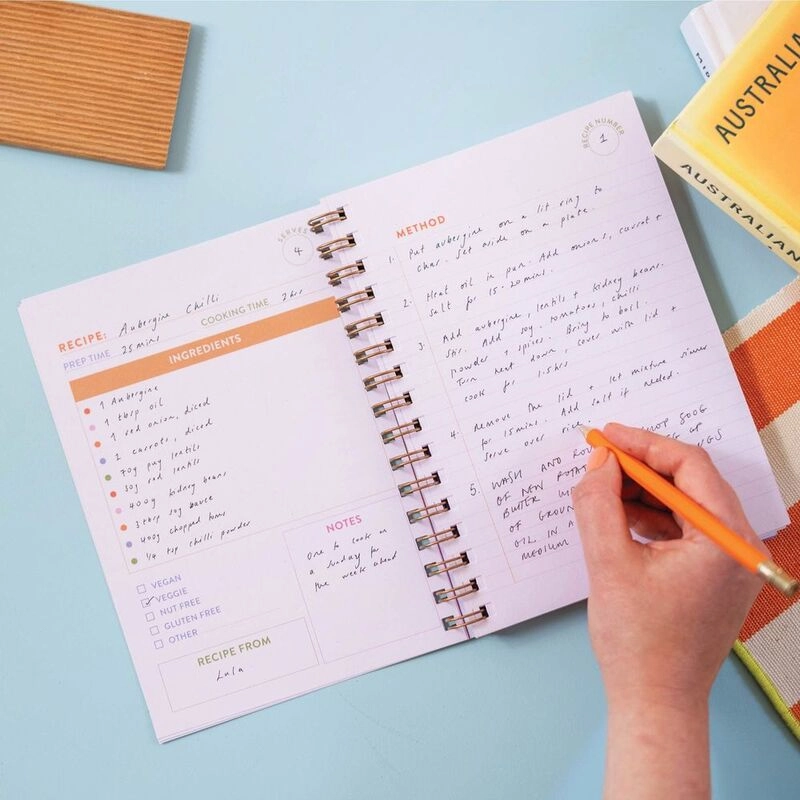 SERVES
4
RECIPE: Aubergine Chilli
PREP TIME 25 mins COOKING TIME 2 hrs
INGREDIENTS
1 Aubergine
1 tbsp oil
1 red onion, diced
2 carrots, diced
70g puy lentils
30g red lentils
400g kidney beans
3 tbsp soy sauce
400g chopped toms
1/4 tsp chilli powder
VEGAN
VEGGIE
NUT FREE
GLUTEN FREE
OTHER
NOTES
One to cook on
a Sunday for
the week ahead
RECIPE FROM
Lula
RECIPE NUMBER
1
METHOD
1. Put aubergine on a lit ring to
char. Set aside on a plate.
2. Heat oil in pan. Add onions, carrot +
salt for 15-20 mins.
3. Add aubergine, lentils + kidney beans.
Stir. Add soy, tomatoes, chilli
powder + spices. Bring to boil.
Turn heat down, cover with lid +
cook for 1.5 hrs
4. Remove the lid + let mixture simmer
for 15 mins. Add salt if needed.
Serve over rice.
5. WASH AND CHOP 500G
OF NEW UP
BUTTER
OF GROUN
OIL IN A
MEDIUM
AUSTRALIA
AUSTRALIAN